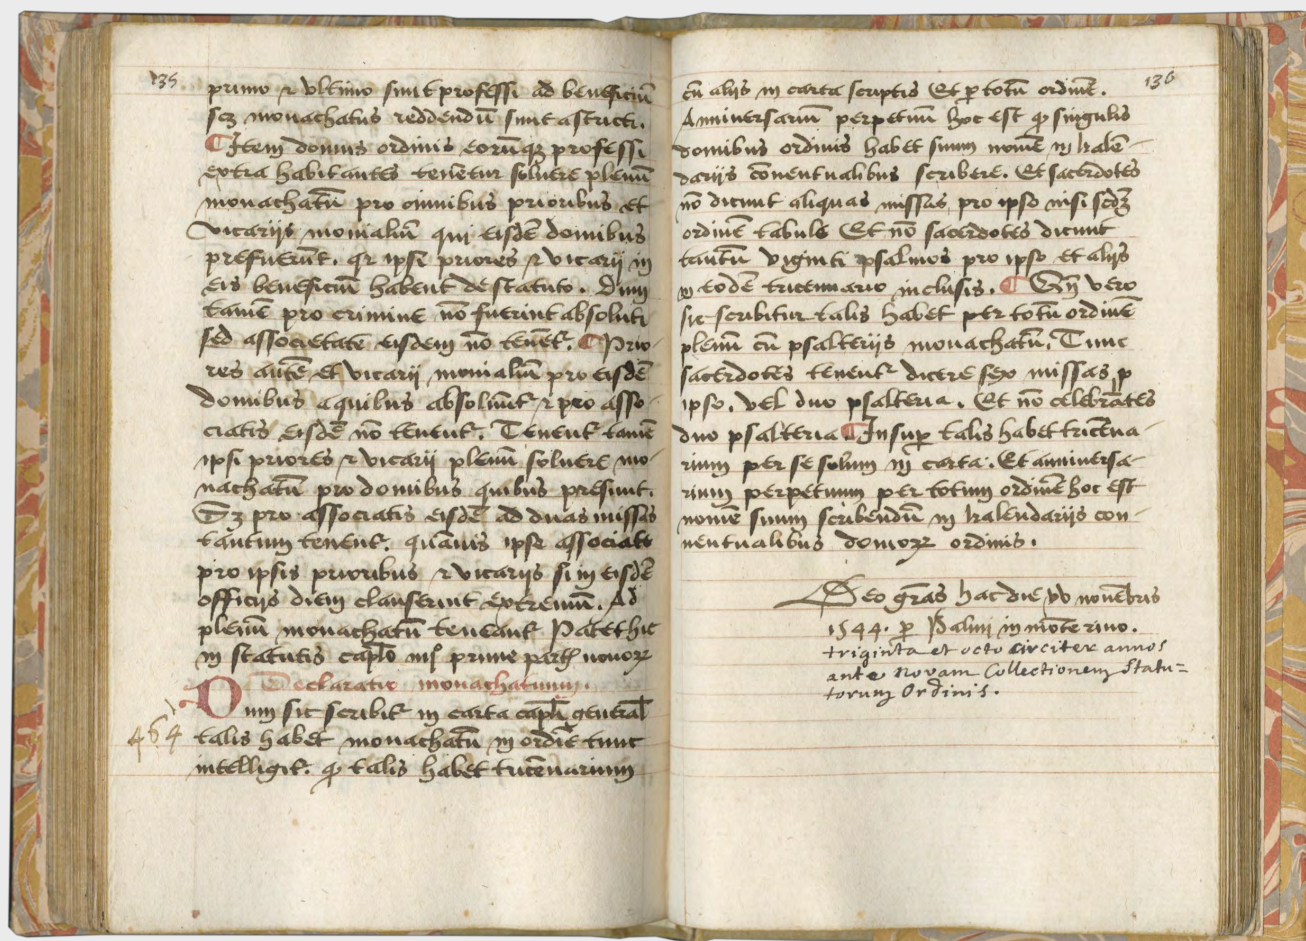 135
primo ⁊ vltimo sint professi ad beneficiū
scꝫ monachatus reddendū sint astricti.
Itē domus ordinis eorūqꝫ professi
extra habitantes tenētur soluere plenū
monachatū pro omnibus prioribus et
vicarijs monialiū qui eisdē domibus
prefuerūt. qr ipsi priores ⁊ vicarij in
eis beneficiū habent de statuto. Dum
tamē pro crimine nō fuerint absoluti
sed associetate eisdem nō tenēt᷑. Prio-
res autē et vicarij monialiū pro eisdē
domibus a quibus absoluūt᷑ ⁊ pro asso-
ciatis eisdē nō tenent᷑. Tenent᷑ tamē
ipsi priores ⁊ vicarij plenū soluere mo-
nachatū pro domibus quibus presunt.
Sꝫ pro associatis eisdē ad duas missas
tantum tenent᷑. quāuis ipse associate
pro ipsis prioribus ⁊ vicarijs si in eisdē
officijs diem clauserint extremū. Ad
plenū monachatū teneant᷑ Patet hic
in statutis caplō prime nouoꝝ
Declaratio monachatuum.
Dum sic scribit᷑ in carta capli general
464
talis habet monachatū in ordīe tunc
intelligit᷑. ꝙ talis habet tricēnarium
136
cū alijs in carta scriptis Et ꝑ totū ordinē.
Anniuersariū perpetuū hoc est ꝙ singulis
domibus ordinis habet suum nomē in kalē-
darijs cōuentualibus scribere. Et sacerdotes
nō dicunt aliquas missas pro ipso nisi scdꝫ
ordinē tabule Et nō sacerdotes dicunt
tantū viginti psalmos pro ipso et alijs
in eodē tricennario inclusis. Sꝫ vero
sic scribitur talis habet per totū ordinē
plenū cū psalterijs monachatū. Tunc
sacerdotes tenent᷑ dicere sex missas ꝑ
ipso. vel duo psalteria. Et nō celebrātes
duo psalteria Insuꝑ talis habet tricēna-
rium per se solum in carta. Et anniuersa-
rium perpetuum per totum ordinē hoc est
nomē suum scribendū in kalendarijs con-
uentualibus domoꝝ ordinis.
Deo grās hac die nouēbris
1544. ꝑ in mōte riuo.
triginta et octo circiter annos
ante Novam Collectionem Statu=
torum Ordinis.